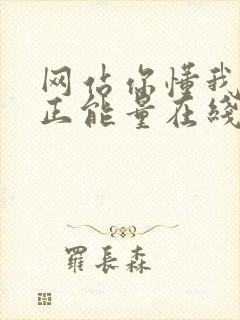 网站你懂我
正能量在线
羅長森